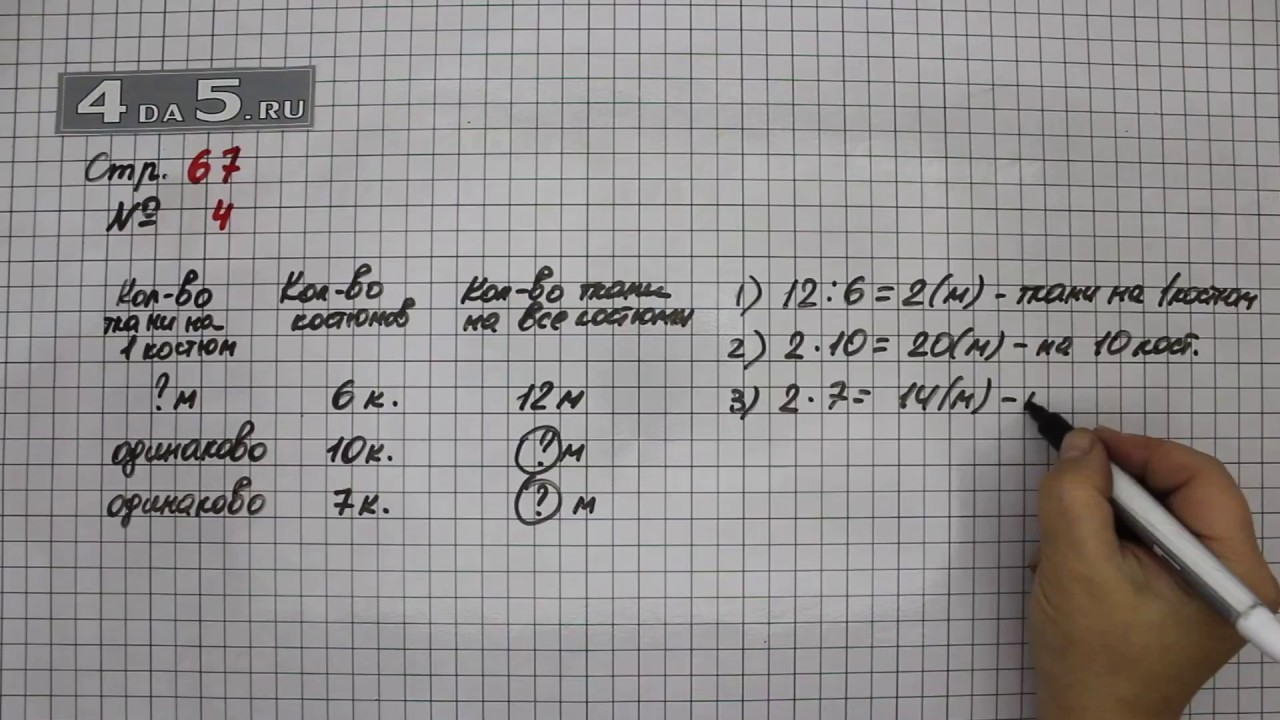 4 DA 5.RU
Стр. 67
№ 4
Кол-во Кол-во Кол-во ткани
ткани на костюмов на все костюмы
1 костюм
? м 6 к. 12 м
одинаково 10 к. ? м
одинаково 7 к. ? м
1) 12 : 6 = 2 (м) - ткани на 1 костюм
2) 2 · 10 = 20 (м) - на 10 кост.
3) 2 · 7 = 14 (м) -